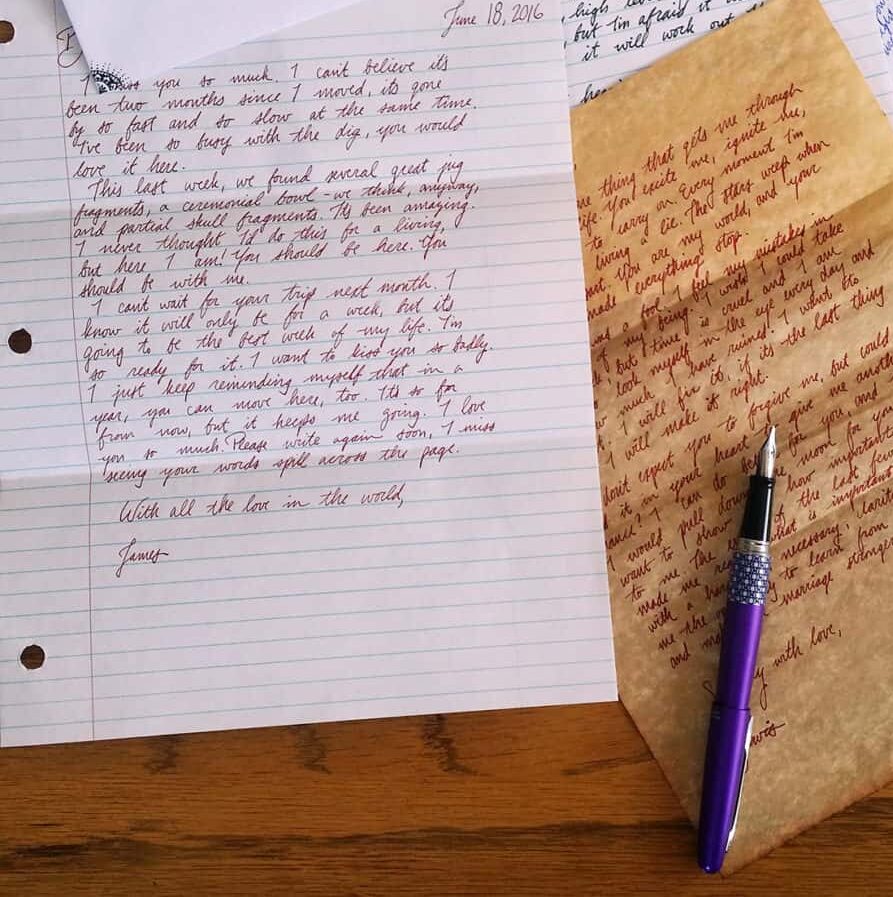 June 18, 2016
you so much. I can't believe its
been two months since I moved, its gone
by so fast and so slow at the same time.
I've been so busy with the dig, you would
love it here.
This last week, we found several great jug
fragments, a ceremonial bowl - we think, anyway,
and partial skull fragments. Its been amazing.
I never thought I'd do this for a living,
but here I am! You should be here. You
should be with me.
I can't wait for your trip next month. I
know it will only be for a week, but its
going to be the best week of my life. I'm
so ready for it. I want to kiss you so badly.
I just keep reminding myself that in a
year, you can move here, too. Its so far
from now, but it keeps me going. I love
you so much. Please write again soon, I miss
seeing your words spill across the page.
With all the love in the world,
James
high
but I'm afraid it
it will work out
thing that gets me through
life. You excite me, ignite me,
to carry on. Every moment I'm
living a lie. The stars weep when
You are my world, and your
made everything stop.
was a fool. I feel my mistakes in
of my being. I wish I could take
but time is cruel and I am
look myself in the eye every day and
much I have ruined. I want to
I will fix it, if it's the last thing
I will make it right.
expect you to forgive me, but could
it in your heart to give me another
I can do for you, and
I would pull down moon for you
want to show how important
to me. The of the last few
made me what is important
with a necessary,
me the to learn from
and marriage stronger
with love,